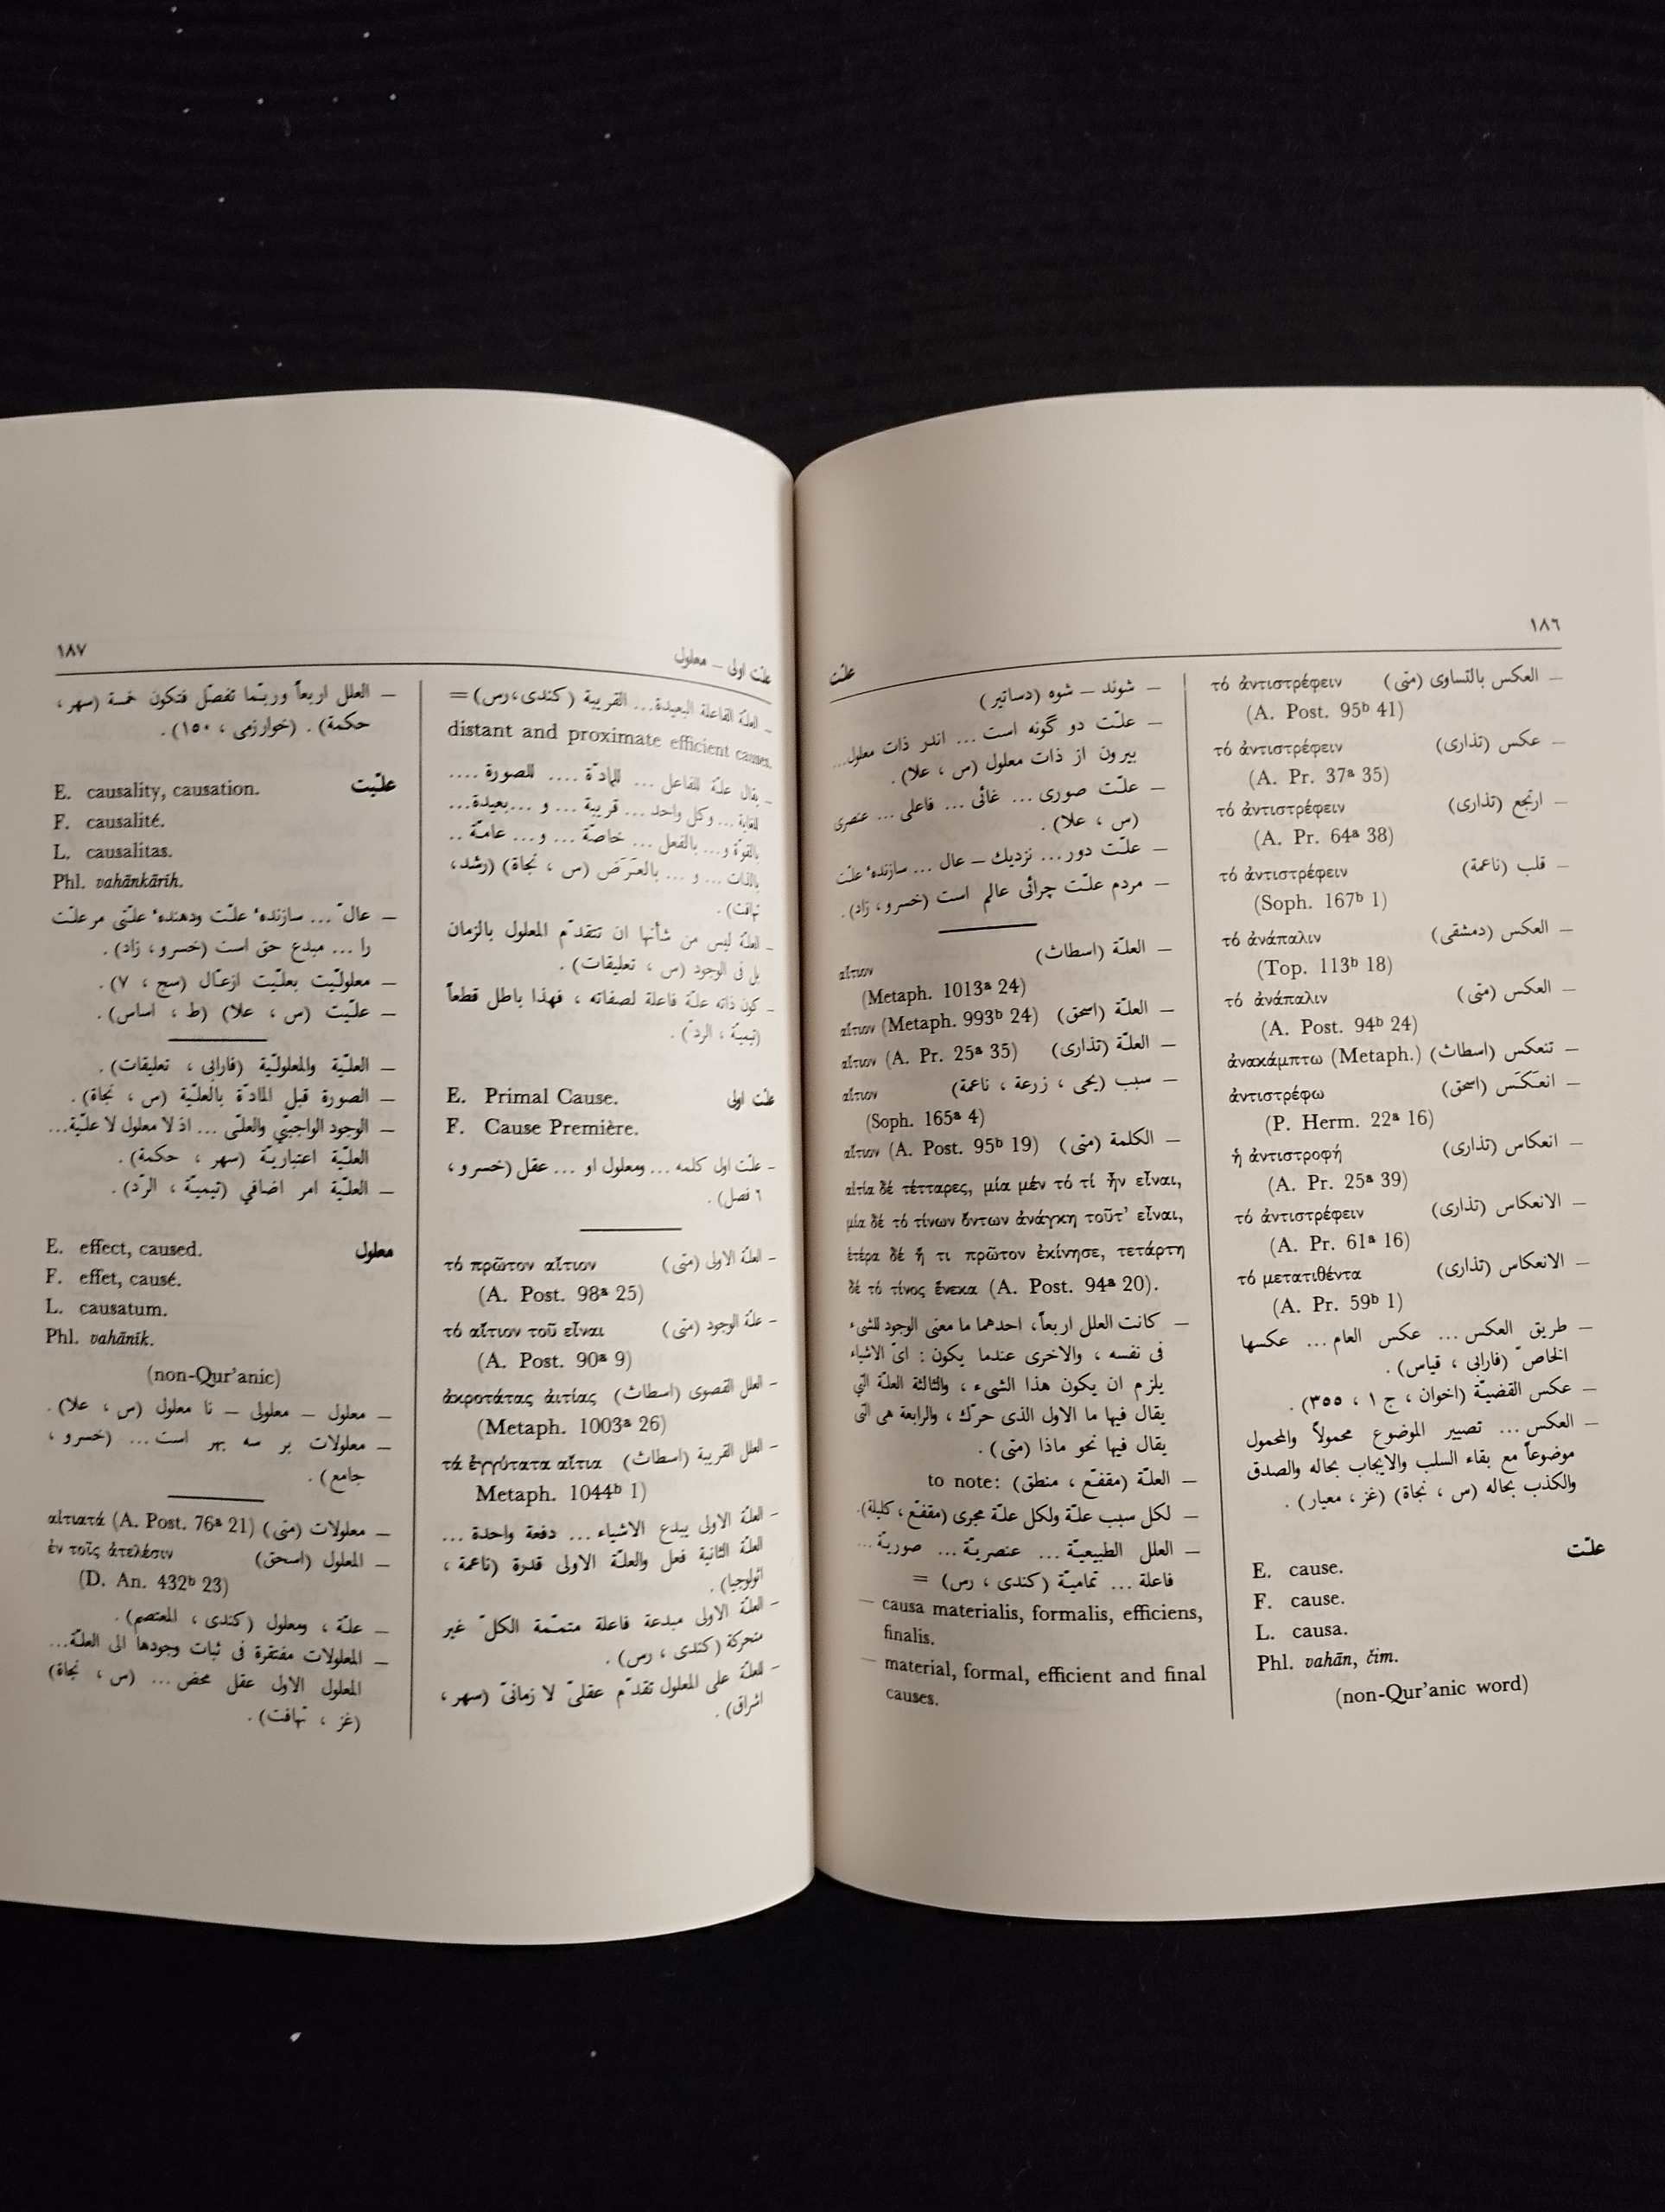 ١٨٦
علّت
— العكس بالتساوى (متى) τό ἀντιστρέφειν
(A. Post. 95ᵇ 41)
— عكس (تذارى) τό ἀντιστρέφειν
(A. Pr. 37ᵃ 35)
— ارتجع (تذارى) τό ἀντιστρέφειν
(A. Pr. 64ᵃ 38)
— قلب (ناعمة) τό ἀντιστρέφειν
(Soph. 167ᵇ 1)
— العكس (دمشقى) τό ἀνάπαλιν
(Top. 113ᵇ 18)
— العكس (متى) τό ἀνάπαλιν
(A. Post. 94ᵇ 24)
— تنعكس (اسطاث) ἀνακάμπτω (Metaph.)
— انعَكَس (اسحق) ἀντιστρέφω
(P. Herm. 22ᵃ 16)
— انعكاس (تذارى) ἡ ἀντιστροφή
(A. Pr. 25ᵃ 39)
— الانعكاس (تذارى) τό ἀντιστρέφειν
(A. Pr. 61ᵃ 16)
— الانعكاس (تذارى) τό μετατιθέντα
(A. Pr. 59ᵇ 1)
— طريق العكس ... عكس العام ... عكسها
الخاصّ (فارابى ، قياس) .
— عكس القضيّة (اخوان ، ج ١ ، ٣٥٥) .
— العكس ... تصيير الموضوع محمولاً والمحمول
موضوعاً مع بقاء السلب والايجاب بحاله والصدق
والكذب بحاله (س ، نجاة) (غز ، معيار) .
علّت
E. cause.
F. cause.
L. causa.
Phl. vahān, čim.
(non-Qur'anic word)
— شوند – شوه (دساتير)
— علّت دو گونه است ... اندر ذات معلول...
بيرون از ذات معلول (س ، علا) .
— علّت صورى ... غائى ... فاعلى ... عنصرى
(س ، علا) .
— علّت دور... نزديك – عال ... سازندهٔ علّت
— مردم علّت چرائى عالم است (خسرو، زاد).
— العلّة (اسطاث) αἴτιον
(Metaph. 1013ᵃ 24)
— العلّة (اسحق) αἴτιον (Metaph. 993ᵇ 24)
— العلّة (تذارى) αἴτιον (A. Pr. 25ᵃ 35)
— سبب (يحى ، زرعة ، ناعمة) αἴτιον
(Soph. 165ᵃ 4)
— الكلمة (متى) αἴτιον (A. Post. 95ᵇ 19)
αἰτία δέ τέτταρες, μία μέν τό τί ἦν εἶναι,
μία δέ τό τίνων ὄντων ἀνάγκη τοῦτ' εἶναι,
ἑτέρα δέ ἥ τι πρῶτον ἐκίνησε, τετάρτη
δέ τό τίνος ἕνεκα (A. Post. 94ᵃ 20).
— كانت العلل اربعاً، احدهما ما معنى الوجود للشىء
فى نفسه ، والاخرى عندما يكون : اىّ الاشياء
يلزم ان يكون هذا الشىء ، والثالثة العلّة التي
يقال فيها ما الاول الذى حرّك ، والرابعة هى التى
يقال فيها نحو ماذا (متى) .
— العلّة (مقفّع ، منطق) to note:
— لكل سبب علّة ولكل علّة مجرى (مقفّع ، كليلة).
— العلل الطبيعيّة ... عنصريّة ... صوريّة ...
فاعلة ... تماميّة (كندى ، رس) =
— causa materialis, formalis, efficiens,
finalis.
— material, formal, efficient and final
causes.
علّت اولى – معلول
١٨٧
– العلّة الفاعلة البعيدة... القريبة (كندى،رس) =
distant and proximate efficient causes.
– يقال علّة للفاعل ... للمادّة .... للصورة ....
للغاية ... وكل واحد ... قريبة ... و ...بعيدة...
بالقوّة و... بالفعل ... خاصّة ... و... عامّة ..
بالذات ... و ... بالعَرَض (س ، نجاة) (رشد،
تهافت) .
– العلّة ليس من شأنها ان تتقدّم المعلول بالزمان
بل فى الوجود (س ، تعليقات) .
– كون ذاته علّة فاعلة لصفاته ، فهذا باطل قطعاً
(تيميّة ، الردّ) .
علّت اولى
E. Primal Cause.
F. Cause Première.
– علّت اول كلمه ... ومعلول او ... عقل (خسرو ،
٦ فصل) .
– العلّة الاولى (متى) τό πρῶτον αἴτιον
(A. Post. 98ᵃ 25)
– علّة الوجود (متى) τό αἴτιον τοῦ εἶναι
(A. Post. 90ᵃ 9)
– العلل القصوى (اسطاث) ἀκροτάτας ἀιτίας
(Metaph. 1003ᵃ 26)
– العلل القريبة (اسطاث) τά ἐγγύτατα αἴτια
Metaph. 1044ᵇ 1)
– العلّة الاولى يبدع الاشياء ... دفعة واحدة ...
العلّة الثانية فعل والعلّة الاولى قدرة (ناعمة ،
اثولوجيا) .
– العلّة الاولى مبدعة فاعلة متمّمة الكلّ غير
متحركة (كندى ، رس) .
– للعلّة على المعلول تقدّم عقلىّ لا زمانىّ (سهر ،
اشراق) .
— العلل اربعاً وربّما تفصّل فتكون خمسة (سهر ،
حكمة) . (خوارزمى ، ١٥٠) .
علّيت
E. causality, causation.
F. causalité.
L. causalitas.
Phl. vahānkārih.
— عالّ ... سازندهٔ علّت ودهندهٔ علّتى مرعلّت
را ... مبدع حق است (خسرو ، زاد) .
— معلوليّت بعليّت ازعّال (سج ، ٧) .
— علّيّت (س ، علا) (ط ، اساس) .
— العلّيّة والمعلوليّة (فارابى ، تعليقات) .
— الصورة قبل المادّة بالعلّيّة (س ، نجاة) .
— الوجود الواجبي والعلّى ... اذ لا معلول لا علّيّة...
العلّيّة اعتباريّة (سهر ، حكمة) .
— العلّيّة امر اضافي (تيميّة ، الرّد) .
معلول
E. effect, caused.
F. effet, causé.
L. causatum.
Phl. vahānik.
(non-Qur'anic)
— معلول – معلولى – نا معلول (س ، علا) .
— معلولات بر سه بهر است ... (خسرو ،
جامع) .
— معلولات (متى) αἰτιατά (A. Post. 76ᵃ 21)
— المعلول (اسحق) ἐν τοῖς ἀτελέσιν
(D. An. 432ᵇ 23)
— علّة ، ومعلول (كندى ، المعتصم) .
— المعلولات مفتقرة فى ثبات وجودها الى العلّة...
المعلول الاول عقل محض ... (س ، نجاة)
(غز ، تهافت) .